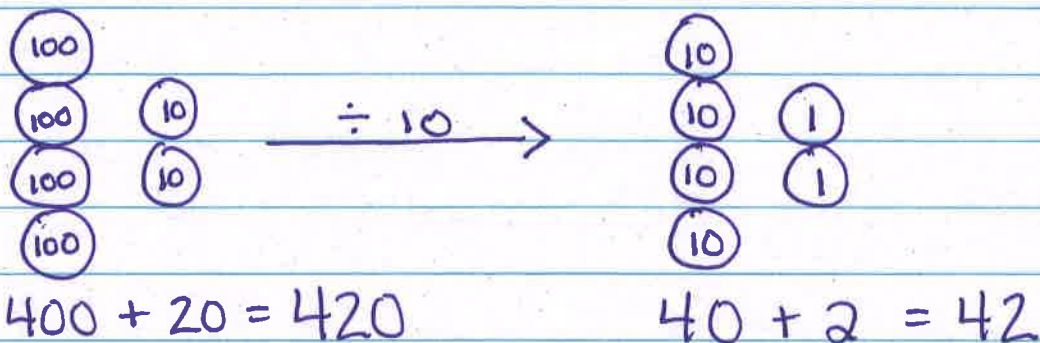 100 10
100 10 ÷ 10 10 1
100 10 10 1
100 10
400 + 20 = 420 40 + 2 = 42